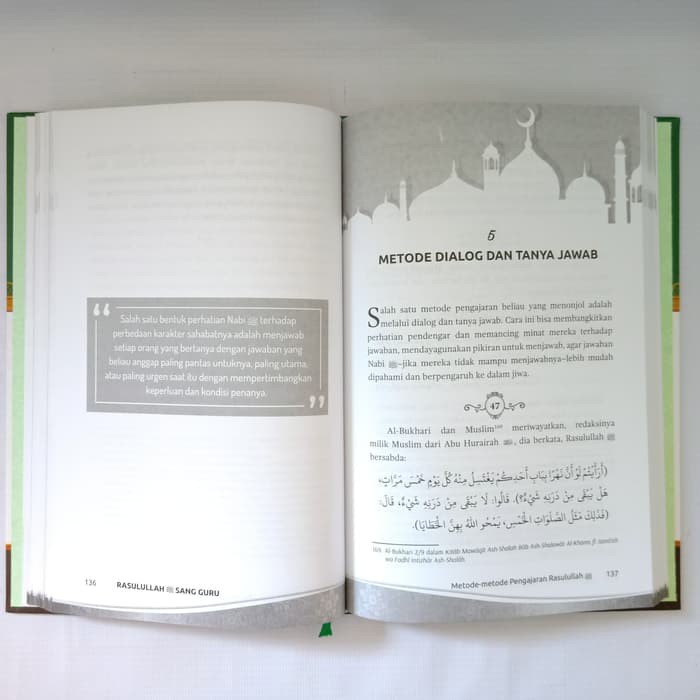 Salah satu bentuk perhatian Nabi ﷺ terhadap
perbedaan karakter sahabatnya adalah menjawab
setiap orang yang bertanya dengan jawaban yang
beliau anggap paling pantas untuknya, paling utama,
atau paling urgen saat itu dengan mempertimbangkan
keperluan dan kondisi penanya.
136
RASULULLAH ﷺ SANG GURU
5
METODE DIALOG DAN TANYA JAWAB
Salah satu metode pengajaran beliau yang menonjol adalah
melalui dialog dan tanya jawab. Cara ini bisa membangkitkan
perhatian pendengar dan memancing minat mereka terhadap
jawaban, mendayagunakan pikiran untuk menjawab, agar jawaban
Nabi ﷺ–jika mereka tidak mampu menjawabnya–lebih mudah
dipahami dan berpengaruh ke dalam jiwa.
47
Al-Bukhari dan Muslim¹⁶⁸ meriwayatkan, redaksinya
milik Muslim dari Abu Hurairah, dia berkata, Rasulullah ﷺ
bersabda:
(أَرَأَيْتُمْ لَوْ أَنَّ نَهْرًا بِبَابِ أَحَدِكُمْ يَغْتَسِلُ مِنْهُ كُلَّ يَوْمٍ خَمْسَ مَرَّاتٍ،
هَلْ يَبْقَى مِنْ دَرَنِهِ شَيْءٌ؟). قَالُوا: لَا يَبْقَى مِنْ دَرَنِهِ شَيْءٌ، قَالَ:
(فَذَلِكَ مَثَلُ الصَّلَوَاتِ الْخَمْسِ، يَمْحُو اللهُ بِهِنَّ الْخَطَايَا).
168 Al-Bukhari 2/9 dalam Kitâb Mawâqît Ash-Shalah Bâb Ash-Shalawât Al-Khams fî Jamâ'ah
wa Fadhl Intizhâr Ash-Shalâh.
Metode-metode Pengajaran Rasulullah ﷺ
137